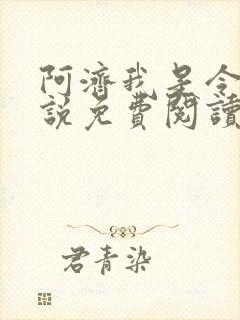 阿濟我是令
説免費閱讀
君青染